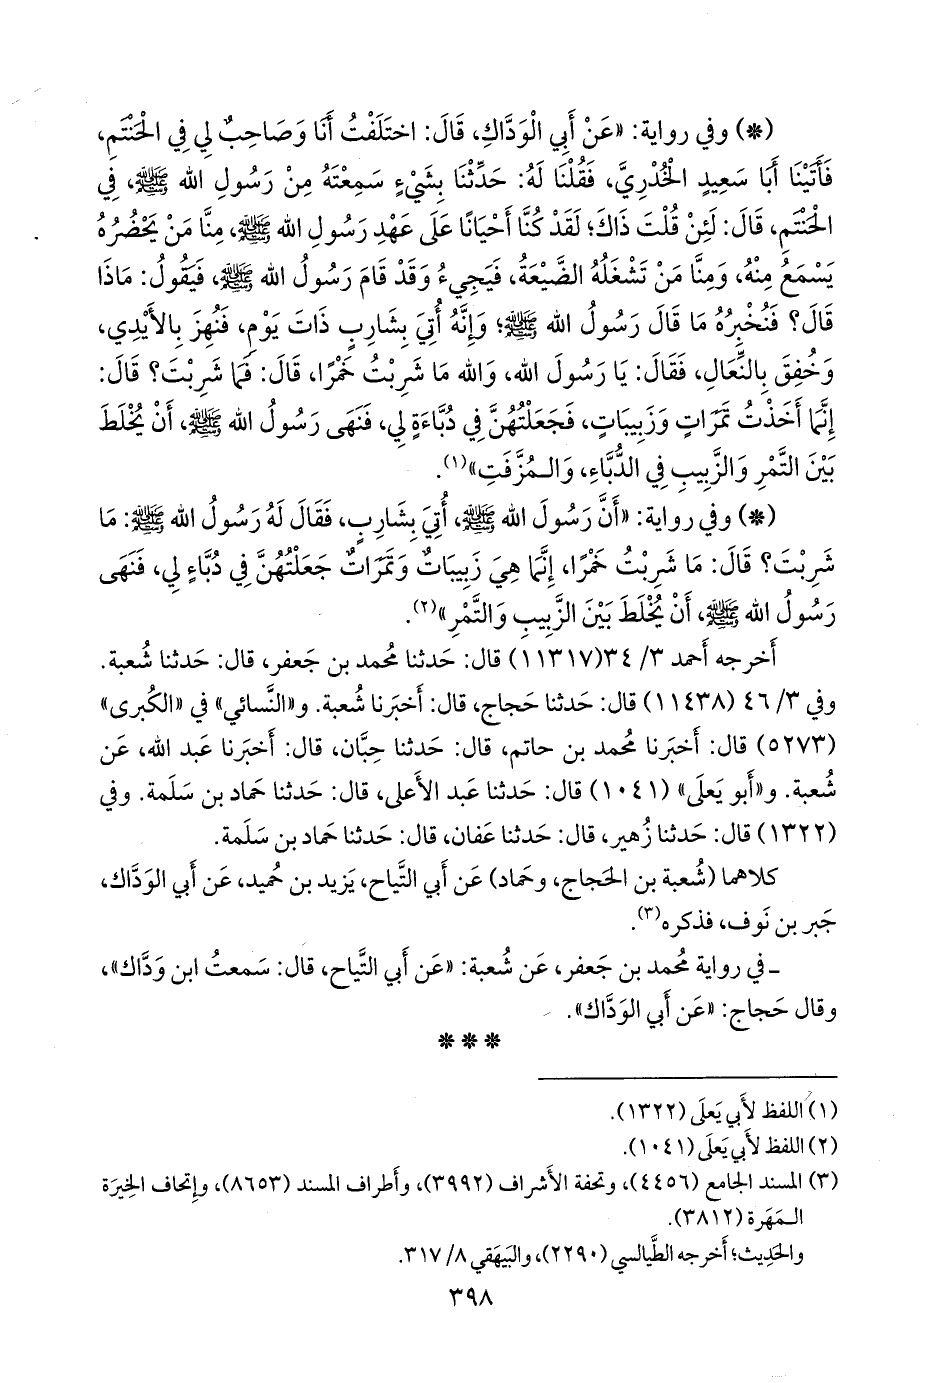 (*) وفي رواية: «عَنْ أَبِي الْوَدَّاكِ، قَالَ: اختَلَفْتُ أَنَا وَصَاحِبٌ لِي فِي الْحَنْتَمِ،
فَأَتَيْنَا أَبَا سَعِيدٍ الْخُدْرِيَّ، فَقُلْنَا لَهُ: حَدِّثْنَا بِشَيْءٍ سَمِعْتَهُ مِنْ رَسُولِ الله ﷺ، فِي
الْحَنْتَمِ، قَالَ: لَئِنْ قُلْتَ ذَاكَ؛ لَقَدْ كُنَّا أَحْيَانًا عَلَى عَهْدِ رَسُولِ الله ﷺ، مِنَّا مَنْ يَحْضُرُهُ
يَسْمَعُ مِنْهُ، وَمِنَّا مَنْ تَشْغَلُهُ الضَّيْعَةُ، فَيَجِيءُ وَقَدْ قَامَ رَسُولُ الله ﷺ، فَيَقُولُ: مَاذَا
قَالَ؟ فَنُخْبِرُهُ مَا قَالَ رَسُولُ الله ﷺ؛ وَإِنَّهُ أُتِيَ بِشَارِبٍ ذَاتَ يَوْمٍ، فَنُهِزَ بِالأَيْدِي،
وَخُفِقَ بِالنِّعَالِ، فَقَالَ: يَا رَسُولَ الله، وَالله مَا شَرِبْتُ خَمْرًا، قَالَ: فَمَا شَرِبْتَ؟ قَالَ:
إِنَّمَا أَخَذْتُ تَمَرَاتٍ وَزَبِيبَاتٍ، فَجَعَلْتُهُنَّ فِي دُبَّاءَةٍ لِي، فَنَهَى رَسُولُ الله ﷺ، أَنْ يُخْلَطَ
بَيْنَ التَّمْرِ وَالزَّبِيبِ فِي الدُّبَّاءِ، وَالـمُزَّفَتِ»(١).
(*) وفي رواية: «أَنَّ رَسُولَ الله ﷺ، أُتِيَ بِشَارِبٍ، فَقَالَ لَهُ رَسُولُ الله ﷺ: مَا
شَرِبْتَ؟ قَالَ: مَا شَرِبْتُ خَمْرًا، إِنَّمَا هِيَ زَبِيبَاتٌ وَتَمَرَاتٌ جَعَلْتُهُنَّ فِي دُبَّاءٍ لِي، فَنَهَى
رَسُولُ الله ﷺ، أَنْ يُخْلَطَ بَيْنَ الزَّبِيبِ وَالتَّمْرِ»(٢).
أَخرجه أَحمد ٣/ ٣٤(١١٣١٧) قال: حَدثنا مُحمد بن جَعفر، قال: حَدثنا شُعبة.
وفي ٣/ ٤٦ (١١٤٣٨) قال: حَدثنا حَجاج، قال: أَخبَرنا شُعبة. و«النَّسائي» في «الكُبرى»
(٥٢٧٣) قال: أَخبَرنا مُحمد بن حاتم، قال: حَدثنا حِبَّان، قال: أَخبَرنا عَبد الله، عَن
شُعبة. و«أَبو يَعلَى» (١٠٤١) قال: حَدثنا عَبد الأَعلى، قال: حَدثنا حَماد بن سَلَمة. وفي
(١٣٢٢) قال: حَدثنا زُهير، قال: حَدثنا عَفان، قال: حَدثنا حَماد بن سَلَمة.
كلاهما (شُعبة بن الحَجاج، وحَماد) عَن أَبي التَّياح، يَزيد بن حُميد، عَن أَبي الوَدَّاك،
جَبر بن نَوف، فذكره(٣).
ـ في رواية مُحمد بن جَعفر، عَن شُعبة: «عَن أَبي التَّياح، قال: سَمعتُ ابن وَدَّاك»،
وقال حَجاج: «عَن أَبي الوَدَّاك».
* * *
(١) اللفظ لأَبي يَعلَى (١٣٢٢).
(٢) اللفظ لأَبي يَعلَى (١٠٤١).
(٣) المسند الجامع (٤٤٥٦)، وتحفة الأَشراف (٣٩٩٢)، وأَطراف المسند (٨٦٥٣)، وإِتحاف الخِيرَة
الـمَهَرة (٣٨١٢).
والحَدِيث؛ أَخرجه الطَّيالسي (٢٢٩٠)، والبَيهَقي ٨/ ٣١٧.
٣٩٨